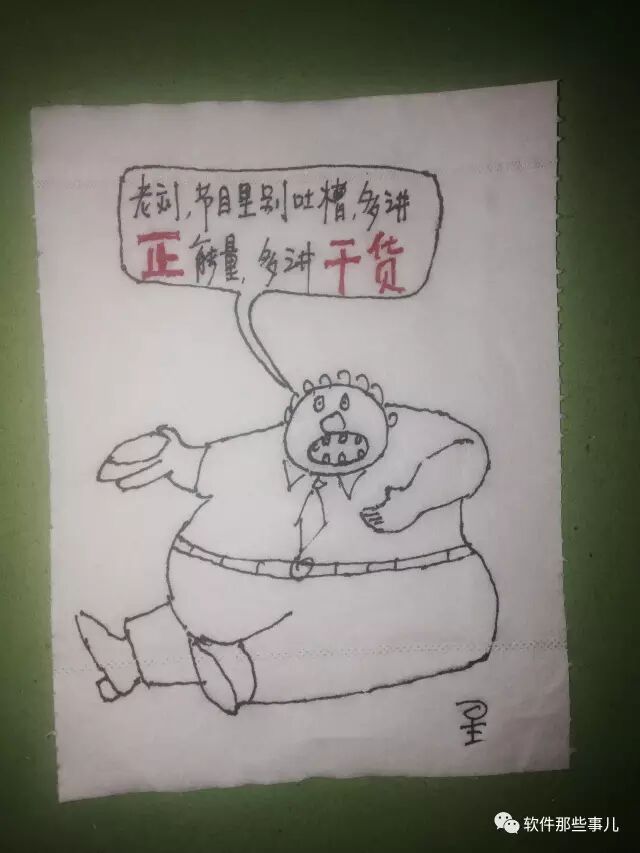 老刘,节目里别吐槽,多讲
正能量,多讲干货
软件那些事儿